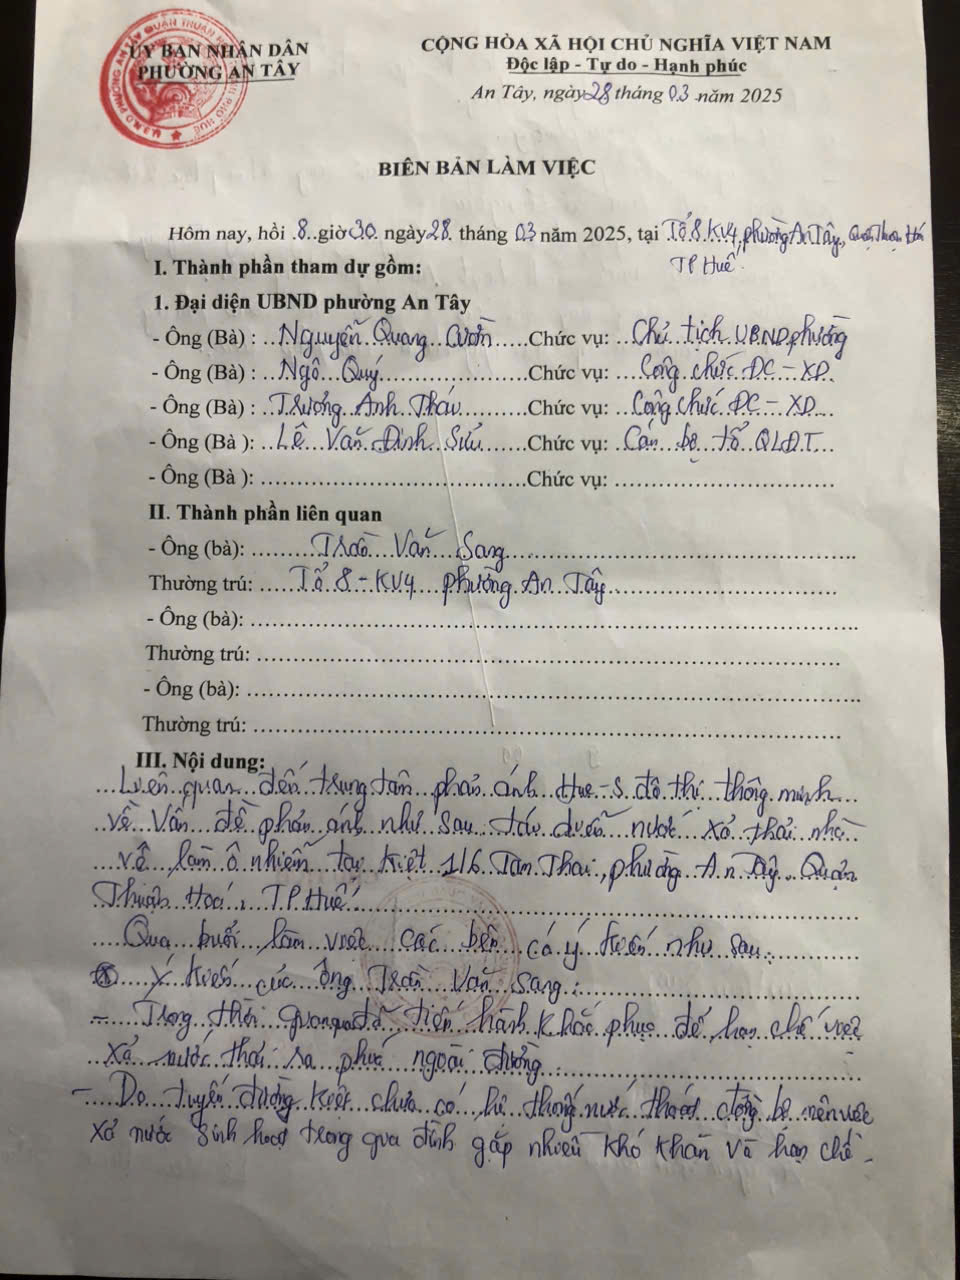 ỦY BAN NHÂN DÂN
PHƯỜNG AN TÂY
CỘNG HÒA XÃ HỘI CHỦ NGHĨA VIỆT NAM
Độc lập - Tự do - Hạnh phúc
An Tây, ngày 28 tháng 03 năm 2025
BIÊN BẢN LÀM VIỆC
Hôm nay, hồi 8 giờ 30 ngày 28 tháng 03 năm 2025, tại Tổ 8 KV4, phường An Tây, Quận Thuận Hóa
TP Huế.
I. Thành phần tham dự gồm:
1. Đại diện UBND phường An Tây
- Ông (Bà) : Nguyễn Quang Chức vụ: Chủ tịch UBND phường
- Ông (Bà) : Ngô Quý Chức vụ: Công chức ĐC - XD
- Ông (Bà) : Trương Anh Chức vụ: Công chức ĐC - XD
- Ông (Bà ): Lê Văn Đình Sửu Chức vụ: Cán bộ tổ QLĐT
- Ông (Bà ): Chức vụ:
II. Thành phần liên quan
- Ông (bà): Trần Văn Sang
Thường trú: Tổ 8 - KV4 phường An Tây
- Ông (bà):
Thường trú:
- Ông (bà):
Thường trú:
III. Nội dung:
Liên quan đến trung tâm phản ánh Hue-S đô thị thông minh
về vấn đề phản ánh như sau: nước xả thải nhà
vệ làm ô nhiễm tại kiệt 116 Tam Thai, phường An Tây Quận
Thuận Hoá, TP Huế
Qua buổi làm việc các bên có ý kiến như sau:
* Ý kiến của ông Trần Văn Sang:
- Trong thời gian qua đã tiến hành khắc phục để hạn chế việc
xả nước thải ra phía ngoài đường.
- Do tuyến đường kiệt chưa có hệ thống nước thoát đồng bộ nên việc
xả nước sinh hoạt trong gia đình gặp nhiều khó khăn và hạn chế.